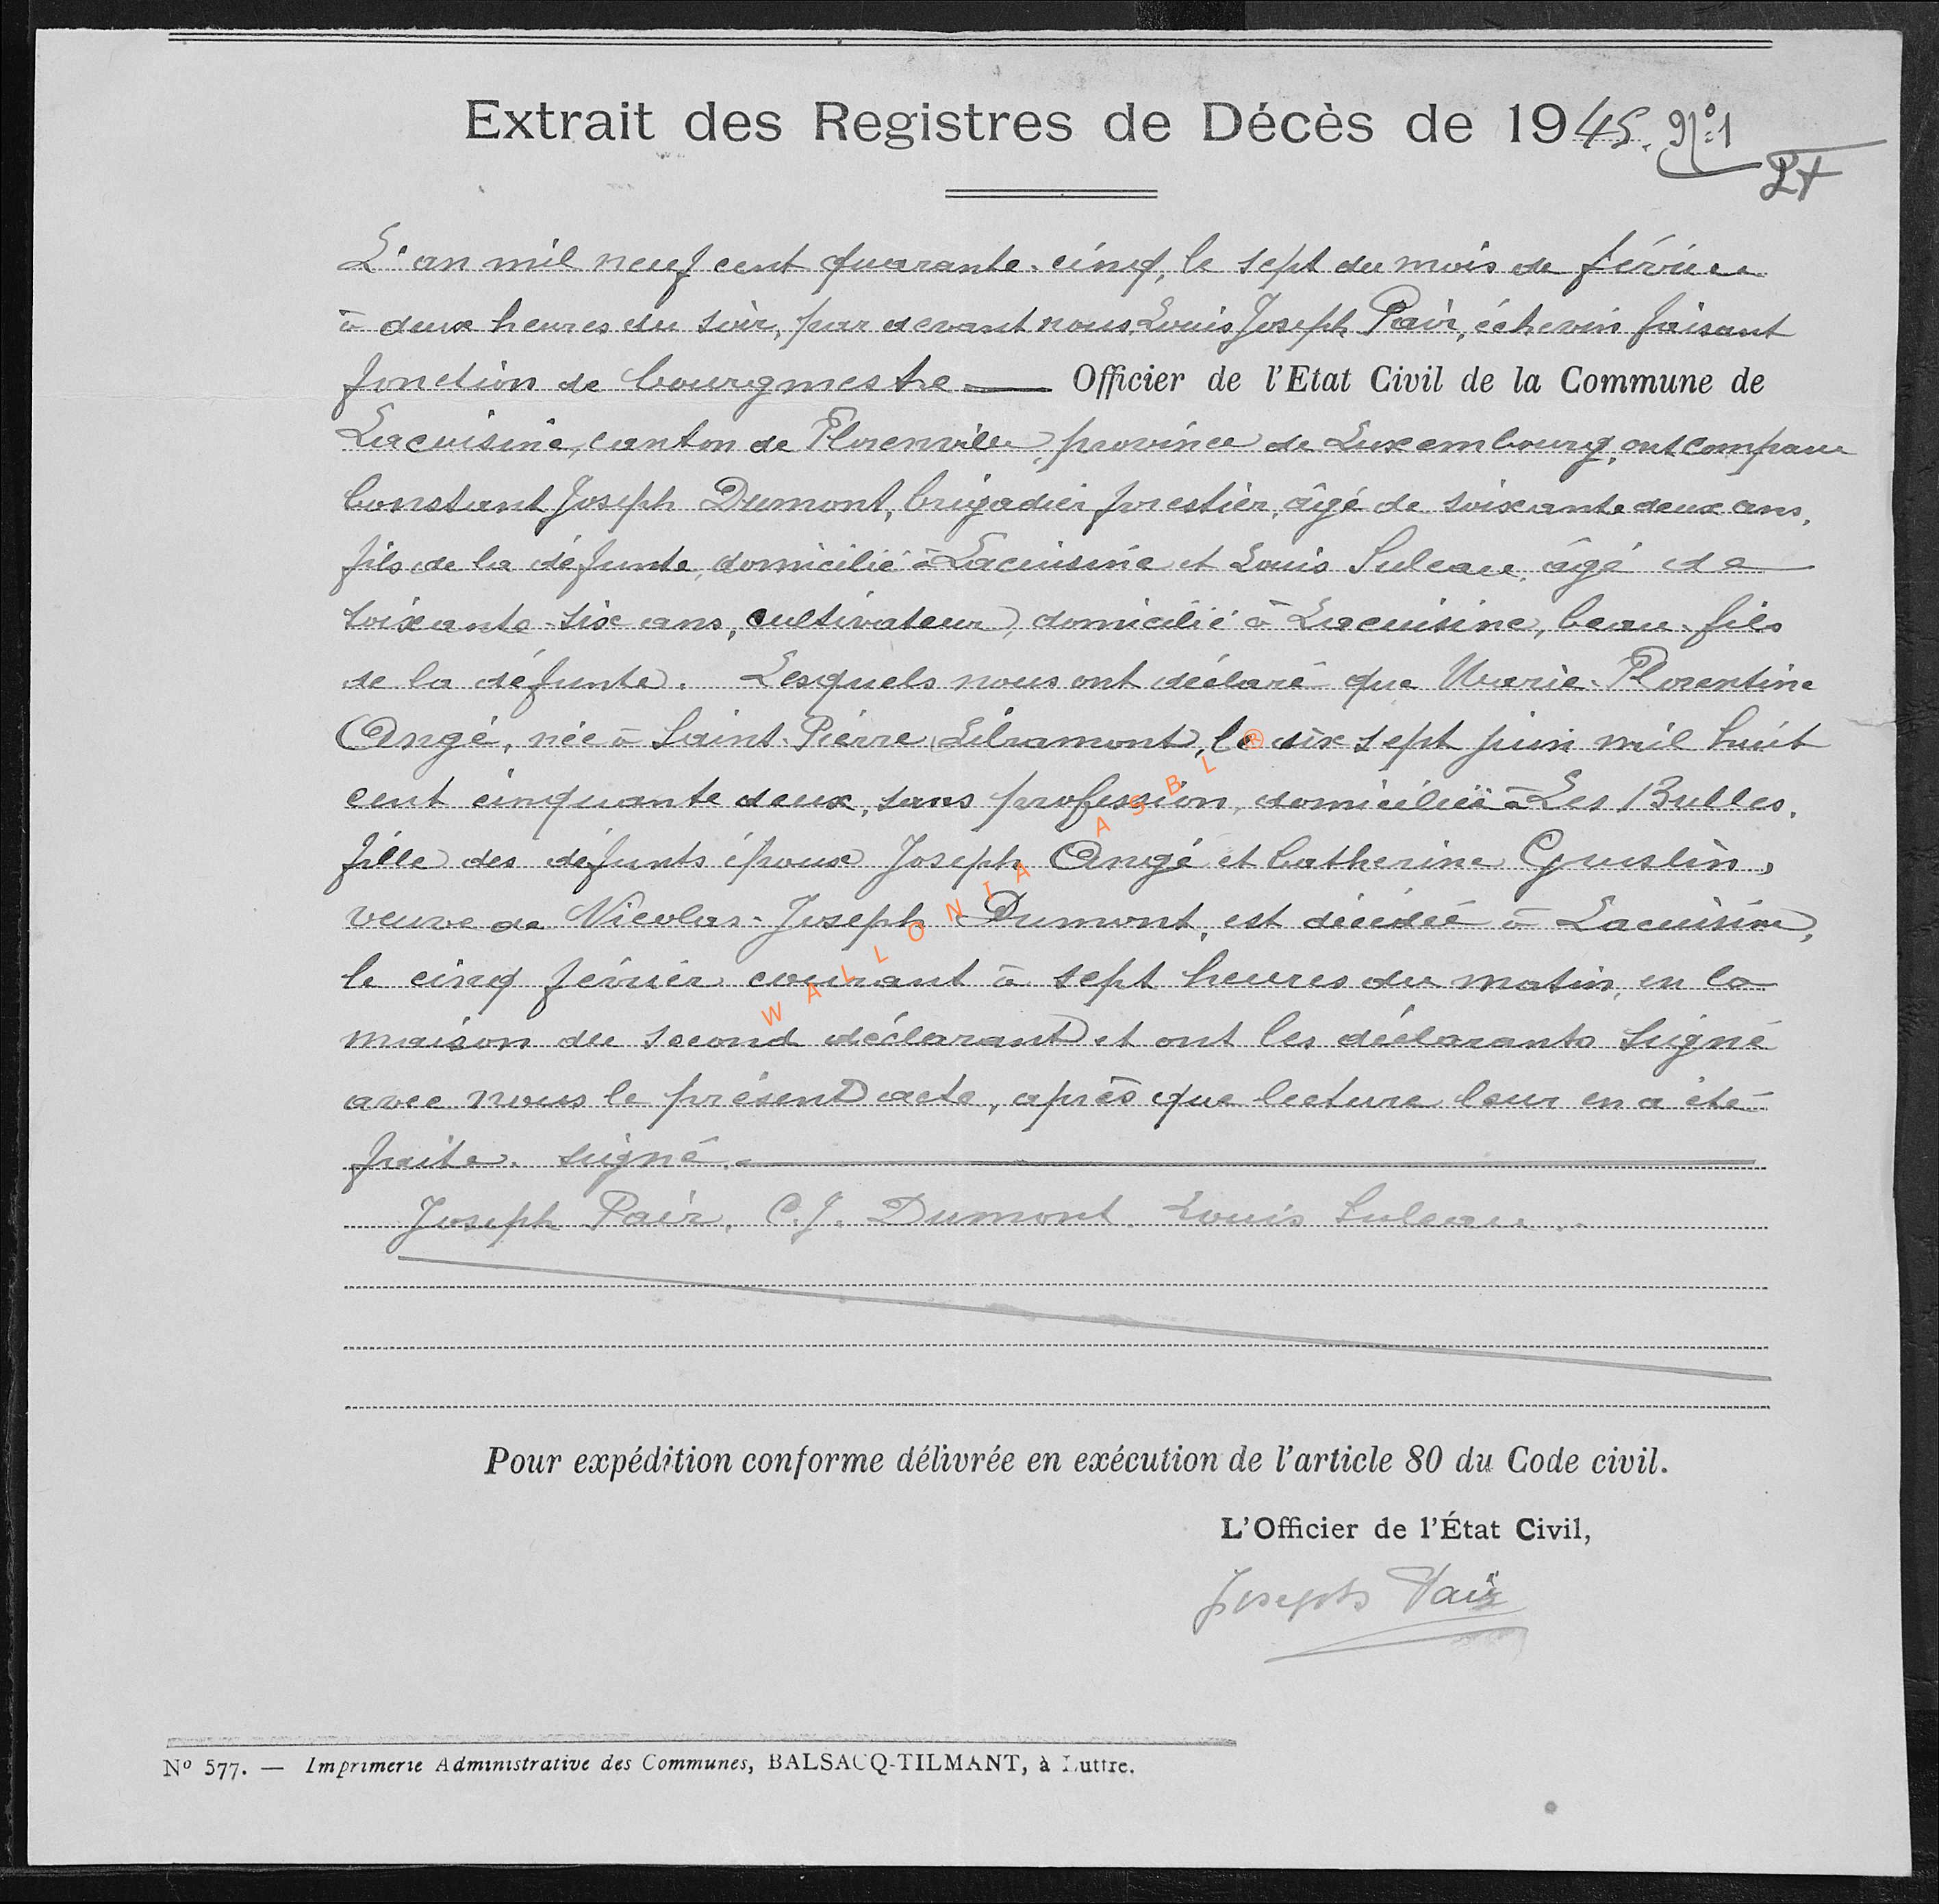 Extrait des Registres de Décès de 1945. N° 1
L'an mil neuf cent quarante-cinq, le sept du mois de février
à deux heures du soir, par devant nous Louis Joseph Pair, échevin faisant
fonction de bourgmestre Officier de l'Etat Civil de la Commune de
Lacuisine, canton de Florenville, province de Luxembourg, ont comparu
Constant Joseph Dumont, brigadier forestier, âgé de soixante deux ans,
fils de la défunte, domicilié à Lacuisine et Louis Suleau, âgé de
soixante-six ans, cultivateur, domicilié à Lacuisine, beau-fils
de la défunte. Lesquels nous ont déclaré que Marie-Florentine
Angé, née à Saint-Pierre, Libramont, le dix sept juin mil huit
cent cinquante deux, sans profession, domiciliée à Les Bulles,
fille des défunts époux Joseph Angé et Catherine Guslin,
veuve de Nicolas-Joseph Dumont, est décédée à Lacuisine,
le cinq février courant à sept heures du matin, en la
maison du second déclarant et ont les déclarants signé
avec nous le présent acte, après que lecture leur en a été
faite. signé.
Joseph Pair, C. J. Dumont. Louis Suleau.
Pour expédition conforme délivrée en exécution de l'article 80 du Code civil.
L'Officier de l'État Civil,
Joseph Pair
N° 577. — Imprimerie Administrative des Communes, BALSACQ-TILMANT, à Luttre.
WALLONIA ASBL ®